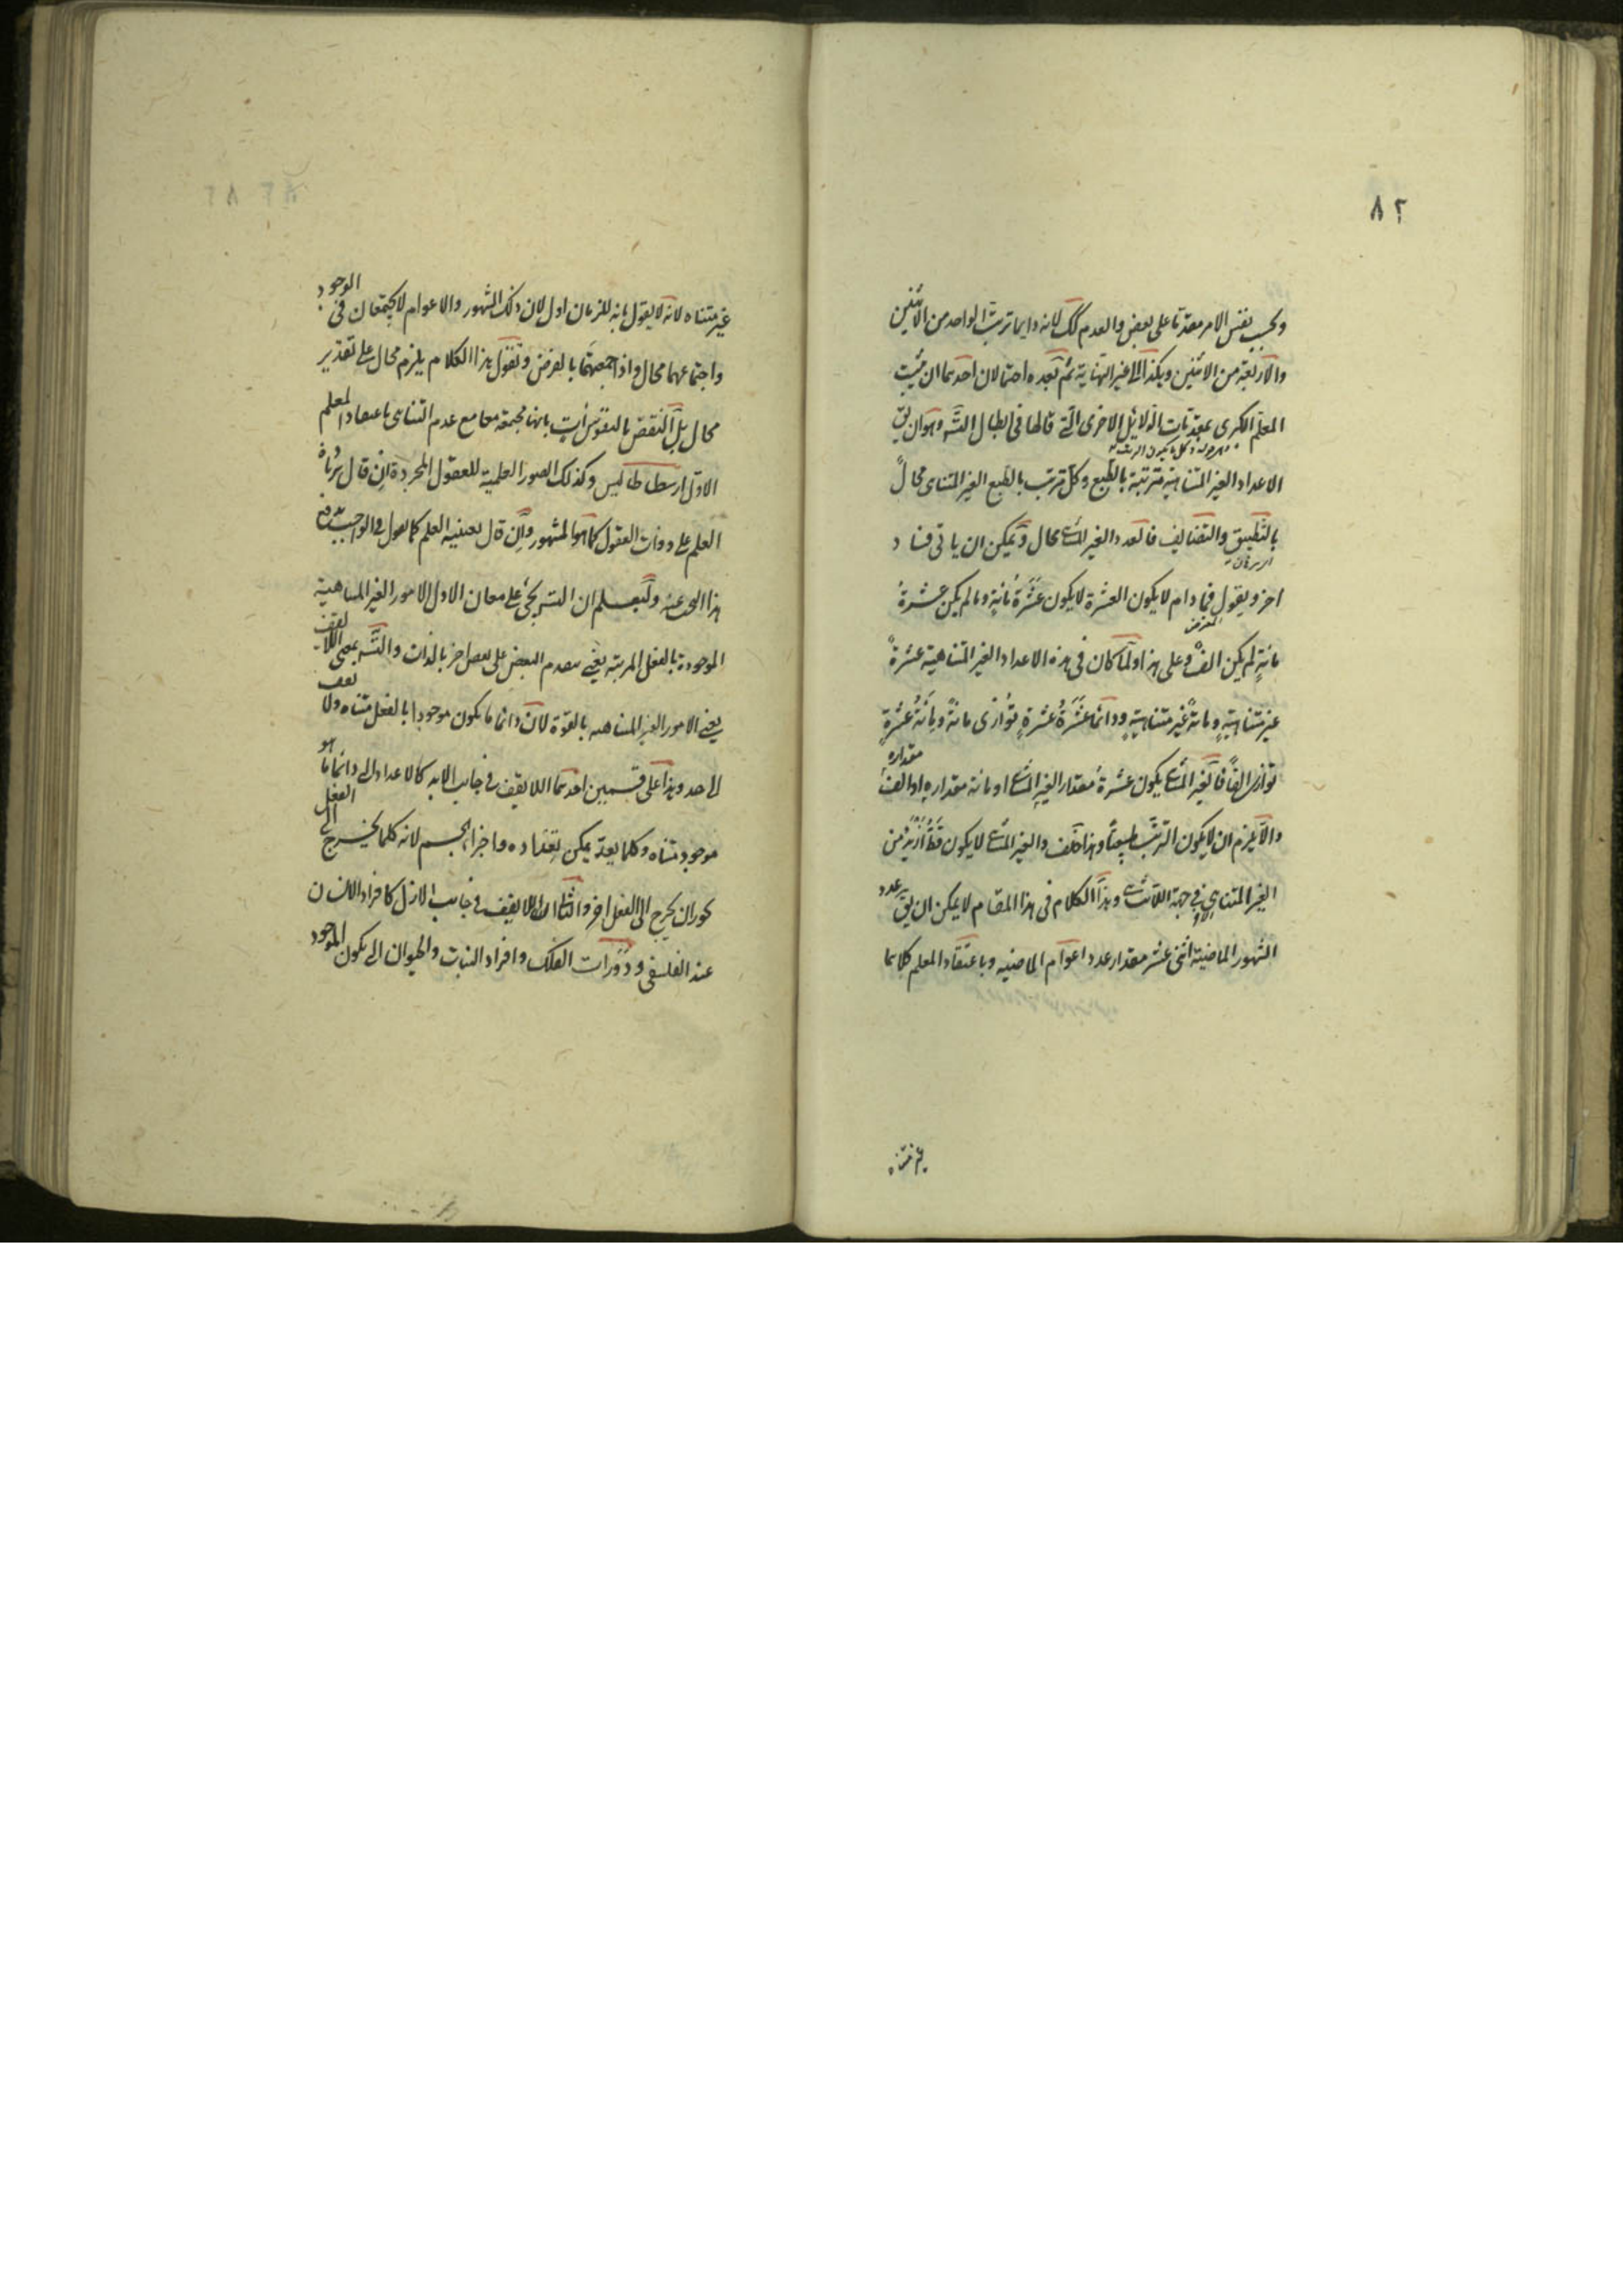 ٨٢
وبحسب نفس الامر مقدما على بعض والعدم كك لانه دايما ترتب الواحد من الاثنين
والاربعة من الاثنين وهكذا الى غير النهاية ثم بعده احتمالان احدهما ان يثبت
المعلم الكبرى بمقدمات الدلايل الاخرى التى قالها فى ابطال التسـ وهو ان يق
الاعداد الغير المتناهية مترتبة بالطبع وكل مترتب بالطبع الغير المتناهى محال
بالتطبيق والتضايف فالعدد الغير المتناهى محال ويمكن ان ياتى فساد
اخر ويقول فما دام لا يكون العشرة لا يكون عشرة مائة وما لم يكن عشرة
مائة لم يكن الف وعلى هذا ولما كان فى هذه الاعداد الغير المتناهية عشرة
غير متناهية ومائة غير متناهية ودائما عشرة عشرة توازى مائة ومائة عشرة
توازى الفا فالغير المتناهى يكون عشرة مقدار الغير المتناهى او مائة مقداره او الف مقداره
والا يلزم ان لا يكون الترتب طبيعيا وهذا خلف والغير المتناهى لا يكون قط ازيد من
الغير المتناهى فى جهة اللاتناهى وهذا الكلام فى هذا المقام لا يمكن ان يق عدد
الشهور الماضية اثنى عشر مقدار عدد اعوام الماضيه وباعتقاد المعلم كلاهما
غير متناه
غير متناه لانه لا يقول بانه للزمان اول لان ذلك الشهور والاعوام لا يجتمعان فى الوجود
واجتماعهما محال واذا جمعتهما بالفرض وتقول هذا الكلام يلزم محال على تقدير
محال بل النقض بالنفوس آت بانها مجتمعة معا مع عدم التناهى باعتقاد المعلم
الاول ارسطاطاليس وكذلك الصور العلمية للعقول المجردة ان قال بزيادة
العلم على ذوات العقول كما هو المشهور وان قال بعينية العلم كما يقول فى الواجب يندفع
هذا البحث عنه وليعلم ان التسـ يجئ على معان الاول الامور الغير المتناهية
الموجودة بالفعل المرتبه يعنى بتقدم البعض على بعض اخر بالذات والتسـ بمعنى اللايقف
يعنى الامور الغير المتناهيه بالقوة لان دائما ما يكون موجودا بالفعل متناه ولا يقف
الى حد وهذا على قسمين احدهما اللايقف فى جانب الابد كالاعداد الى دائما ما هو
موجود متناه وكلما يعد يمكن تعداده واجزاء الجسم لانه كلما يخرج الى الفعل
يجوز ان يخرج الى الفعل اخر والثانى اللايقف فى جانب الازل كافراد الانسان
عند الفلسفى ودورات الفلك وافراد النبات والحيوان الى يكون الموجود